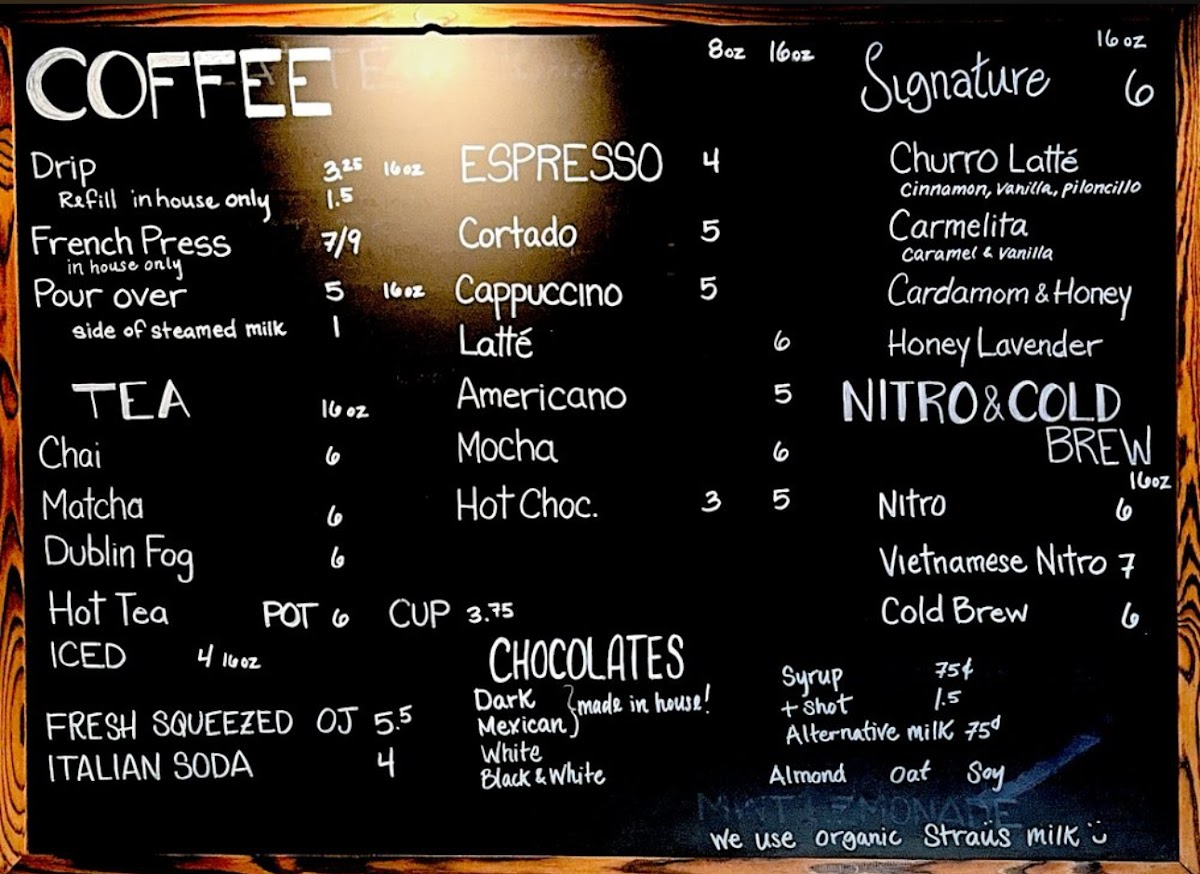 COFFEE
Drip 3.25 16oz
Refill in house only 1.5
French Press 7/9
in house only
Pour over 5 16oz
side of steamed milk 1
TEA 16oz
Chai 6
Matcha 6
Dublin Fog 6
Hot Tea POT 6 CUP 3.75
ICED 4 16oz
FRESH SQUEEZED OJ 5.5
ITALIAN SODA 4
8oz 16oz
ESPRESSO 4
Cortado 5
Cappuccino 5
Latté 6
Americano 5
Mocha 6
Hot Choc. 3 5
CHOCOLATES
Dark
Mexican } made in house!
White
Black & White
16oz
Signature 6
Churro Latté
Cinnamon, Vanilla, piloncillo
Carmelita
Caramel & Vanilla
Cardamom & Honey
Honey Lavender
NITRO & COLD
BREW
16oz
Nitro 6
Vietnamese Nitro 7
Cold Brew 6
Syrup 75¢
+ Shot 1.5
Alternative milk 75¢
Almond Oat Soy
MINT LEMONADE
We use organic Straüs milk